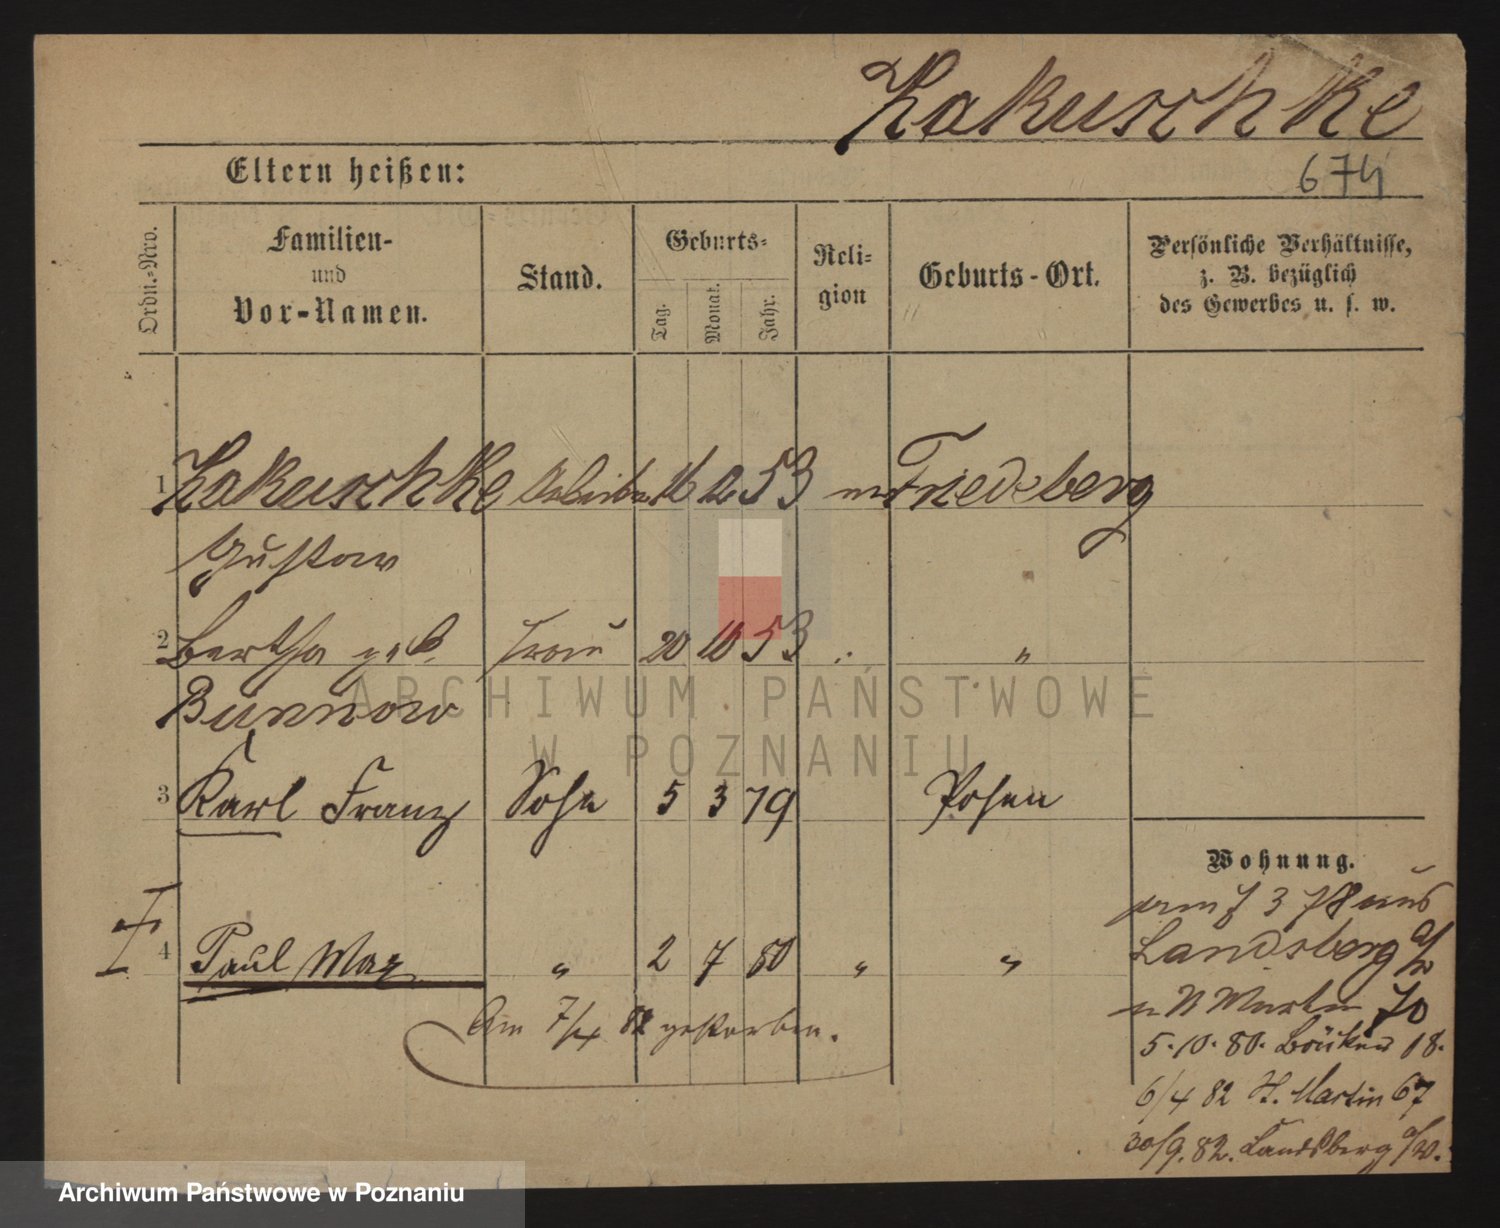 Kakuschke
674
Eltern heißen:
Ordn.-Nro.
Familien-
und
Vor-Namen.
Stand.
Geburts-
Tag.
Monat.
Jahr.
Reli-
gion
Geburts-Ort.
Persönliche Verhältnisse,
z. B. bezüglich
des Gewerbes u. s. w.
1 Kakuschke Arbeiter 16 12 53 Friedeberg
Gustav
2 Bertha geb. Frau 20 10 53 "
Bunnow
3 Karl Franz Sohn 5 3 79 Posen
Wohnung.
4 Paul Max " 2 7 80 " "
Am 7/4 82 gestorben.
3 78 aus
Landsberg a/w
Martin 70
5.10.80. Bäcker 18.
6/4 82 St. Martin 67
30/9.82. Landsberg a/W.
ARCHIWUM PAŃSTWOWE
W POZNANIU
Archiwum Państwowe w Poznaniu